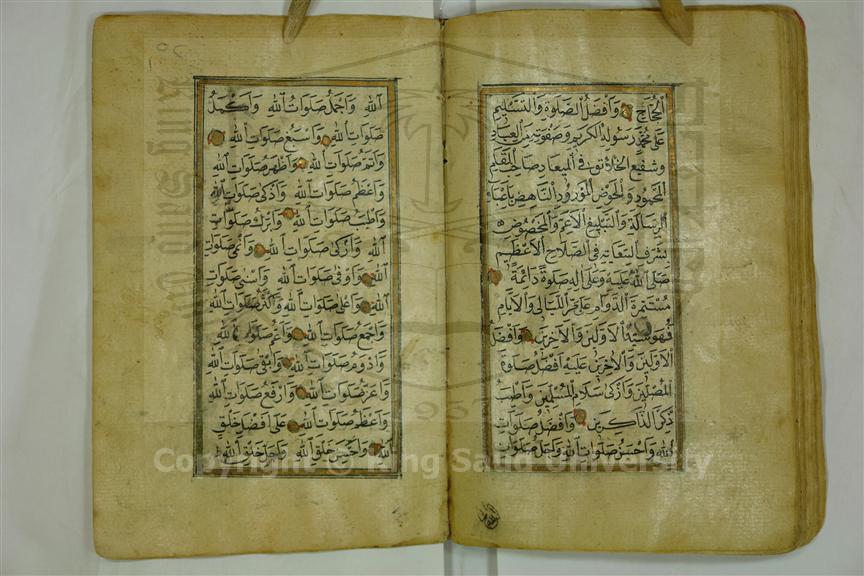 الحجاج وأفضل الصلوة والتسليم
على محمد رسوله الكريم وصفوته من العباد
وشفيع الخلائق في الميعاد صاحب المقام
المحمود والحوض المورود الناهض بأعباء
الرسالة والتبليغ الأعم والمخصوص
بشرف السعاية في الصلاح الأعظم
صلى الله عليه وعلى آله صلوة دائمة
مستمرة الدوام على مر الليالي والأيام
فهو سيد الأولين والآخرين وأفضل
الأولين والآخرين عليه أفضل صلوة
المصلين وأزكى سلام المسلمين وأطيب
ذكر الذاكرين وأفضل صلوات
الله وأحسن صلوات الله وأجل صلوات
الله وأجمل صلوات الله وأكمل
صلوات الله وأسبغ صلوات الله
وأتم صلوات الله وأظهر صلوات الله
وأعظم صلوات الله وأذكى صلوات الله
وأطيب صلوات الله وأبرك صلوات
الله وأزكى صلوات الله وأنمى صلوات
الله وأوفى صلوات الله وأسنى صلوات
الله وأعلى صلوات الله وأكثر صلوات الله
وأجمع صلوات الله وأعم صلوات الله
وأدوم صلوات الله وأبقى صلوات الله
وأعز صلوات الله وأرفع صلوات الله
وأعظم صلوات الله على أفضل خلق
الله وأحسن خلق الله وأجل خلق الله
Copyright © King Saud University
King Saud
1957